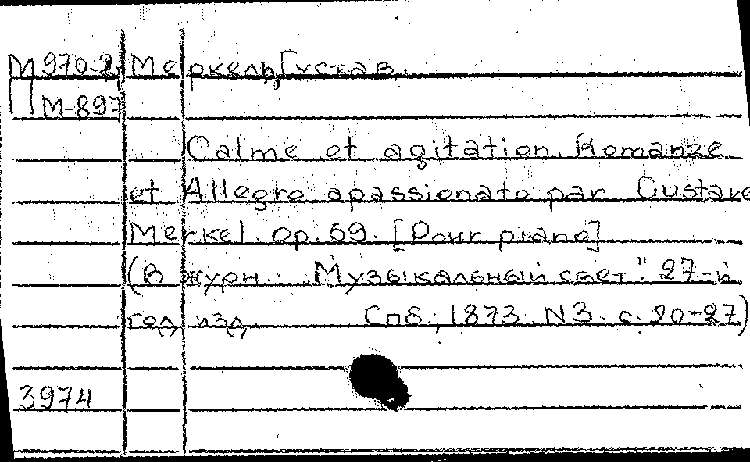 М970-2 Меркель, Густав.
П М-897
Calme et agitation. Romanze
et Allegro apassionato par Gustave
Merkel. Op. 69. [Pour piano]
(В журн. „Музыкальный свет" 27-й
год изд. Спб., 1873. N3. с. 20-27)
3974